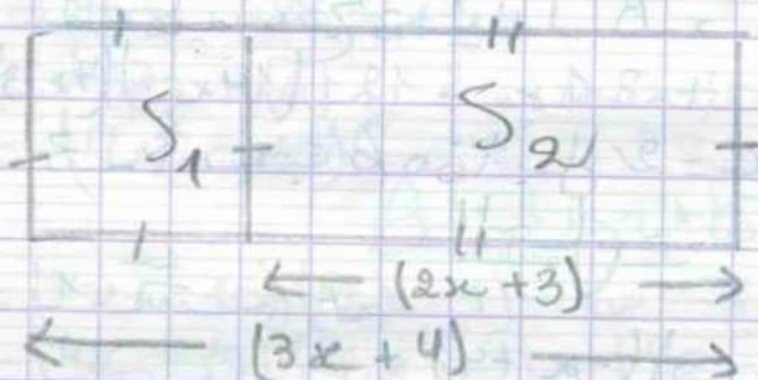 S₁ S₂
(2x+3)
(3x+4)